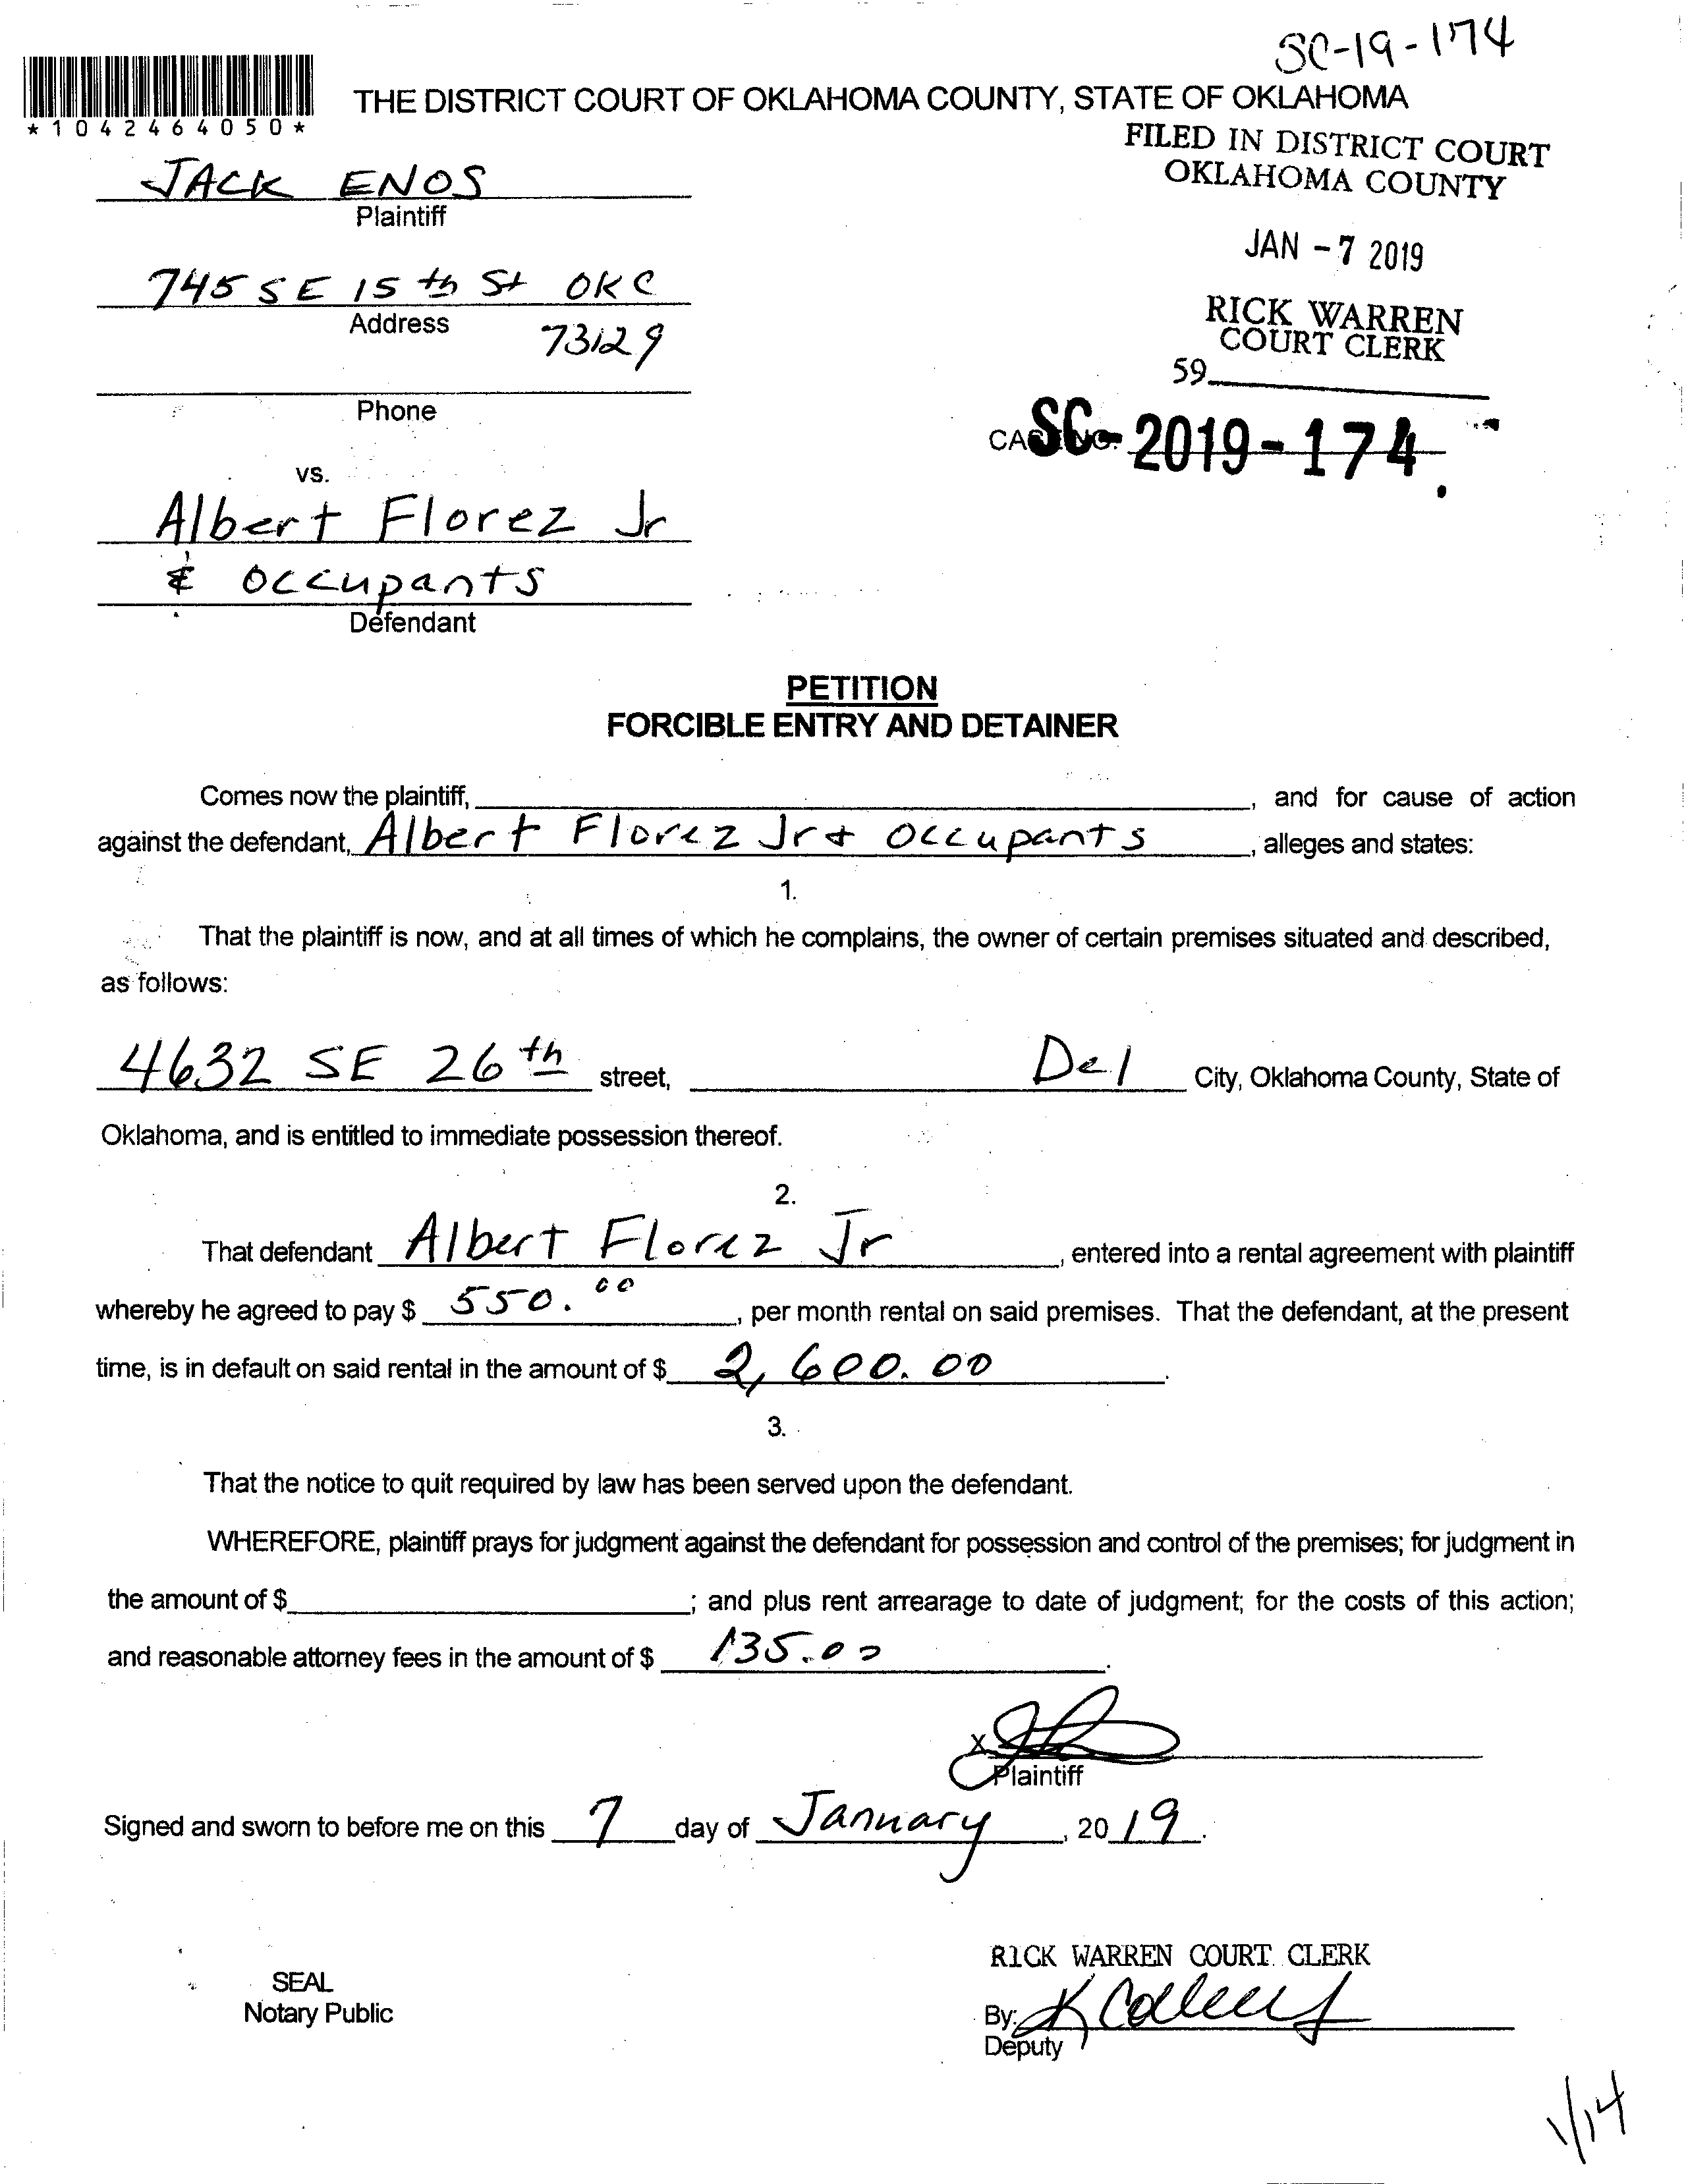 SC-19-174
*1042464050*
THE DISTRICT COURT OF OKLAHOMA COUNTY, STATE OF OKLAHOMA
FILED IN DISTRICT COURT
OKLAHOMA COUNTY
JACK ENOS
Plaintiff
JAN -7 2019
745 SE 15th St OKC
Address
73129
RICK WARREN
COURT CLERK
59
Phone
SC-2019-174
vs.
Albert Florez Jr
& Occupants
Defendant
PETITION
FORCIBLE ENTRY AND DETAINER
Comes now the plaintiff, , and for cause of action
against the defendant, Albert Florez Jr + Occupants, alleges and states:
1.
That the plaintiff is now, and at all times of which he complains, the owner of certain premises situated and described,
as follows:
4632 SE 26th street, Del City, Oklahoma County, State of
Oklahoma, and is entitled to immediate possession thereof.
2.
That defendant Albert Florez Jr, entered into a rental agreement with plaintiff
whereby he agreed to pay $ 550.00, per month rental on said premises. That the defendant, at the present
time, is in default on said rental in the amount of $ 2,600.00.
3.
That the notice to quit required by law has been served upon the defendant.
WHEREFORE, plaintiff prays for judgment against the defendant for possession and control of the premises; for judgment in
the amount of $ ; and plus rent arrearage to date of judgment; for the costs of this action;
and reasonable attorney fees in the amount of $ 135.00.
X
Plaintiff
Signed and sworn to before me on this 7 day of January, 2019.
RICK WARREN COURT CLERK
SEAL
Notary Public
By:
Deputy
1/14